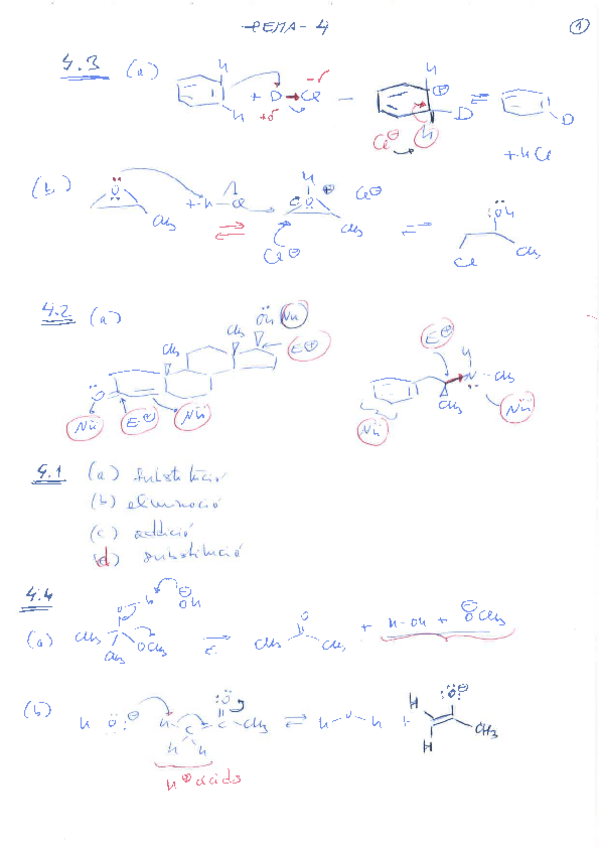 TEMA - 4
1
4.3 (a)
H
H
+ D Cl
-δ
+δ
H
⊕
D
H
Cl⊖
D
+ H Cl
(b)
O
CH3
+ H-Cl
H
O
⊕
Cl⊖
CH3
Cl⊖
OH
Cl
CH3
4.2 (a)
CH3
CH3
OH
Nü
E⊕
O
Nü
E⊕
Nü
E⊕
H
N
CH3
CH3
Nü
Nü
4.1 (a) substitució
(b) eliminació
(c) addició
(d) substitució
4.4
(a)
O H
⊖OH
CH3
OCH3
CH3
O
CH3 CH3
+ H-OH + ⊖OCH3
(b)
H O⊖
H C C CH3
O
H H
H⊕ àcids
H-O-H +
O⊖
H
H
CH3